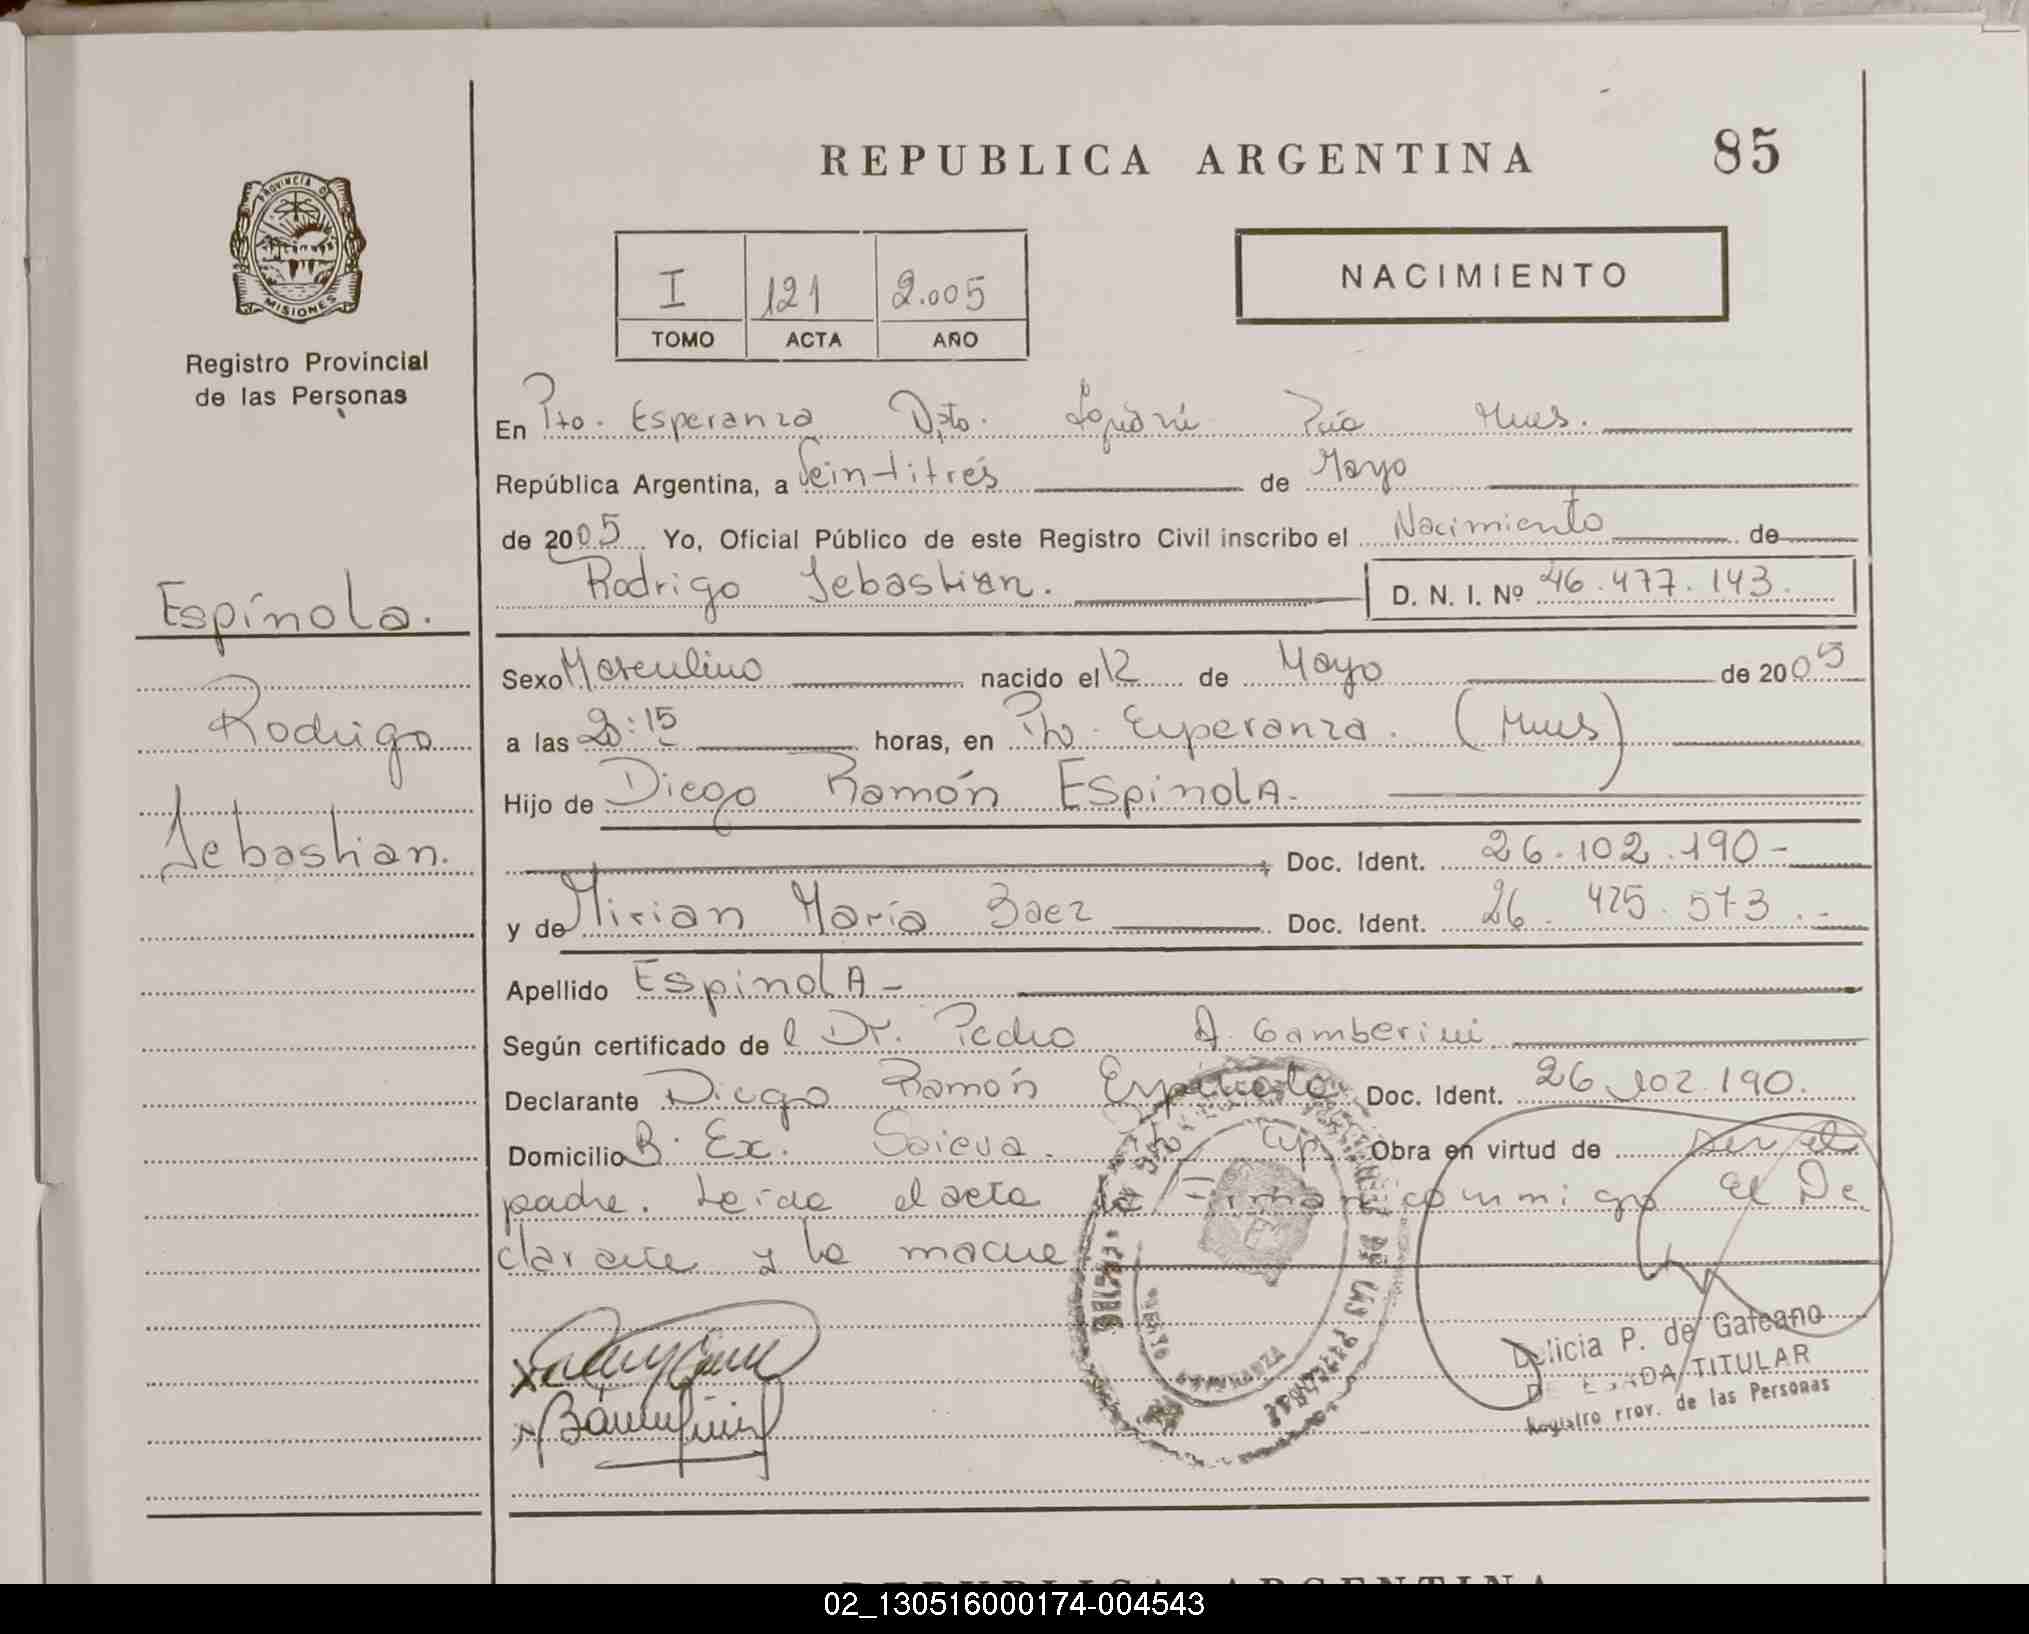 REPUBLICA ARGENTINA
85
PROVINCIA D
MISIONES
Registro Provincial
de las Personas
I 121 2.005
TOMO ACTA AÑO
NACIMIENTO
En Pto. Esperanza Dpto. Iguazú Pcia Mnes.
República Argentina, a Veintitrés de Mayo
de 2005 Yo, Oficial Público de este Registro Civil inscribo el Nacimiento de
Rodrigo Sebastian. D. N. I. Nº 46.477.143.
Espínola.
Rodrigo
Sebastian.
Sexo Masculino nacido el 12 de Mayo de 2005
a las 2:15 horas, en Pto. Esperanza. (Mnes)
Hijo de Diego Ramón EspinolA.
Doc. Ident. 26.102.190-
y de Mirian María Baez Doc. Ident. 26.425.573.-
Apellido EspinolA-
Según certificado del Dr. Pedro A. Gamberini
Declarante Diego Ramón Espínola Doc. Ident. 26.102.190.
Domicilio B. Ex. Pto Esp. Obra en virtud de ser el
padre. Leida el acta la Firman conmigo el De
clarante y la madre
ESPERANZA
DE LAS PERSONAS
Delicia P. de Galeano
DELEGADA TITULAR
Registro Prov. de las Personas
REPUBLICA ARGENTINA
02_130516000174-004543